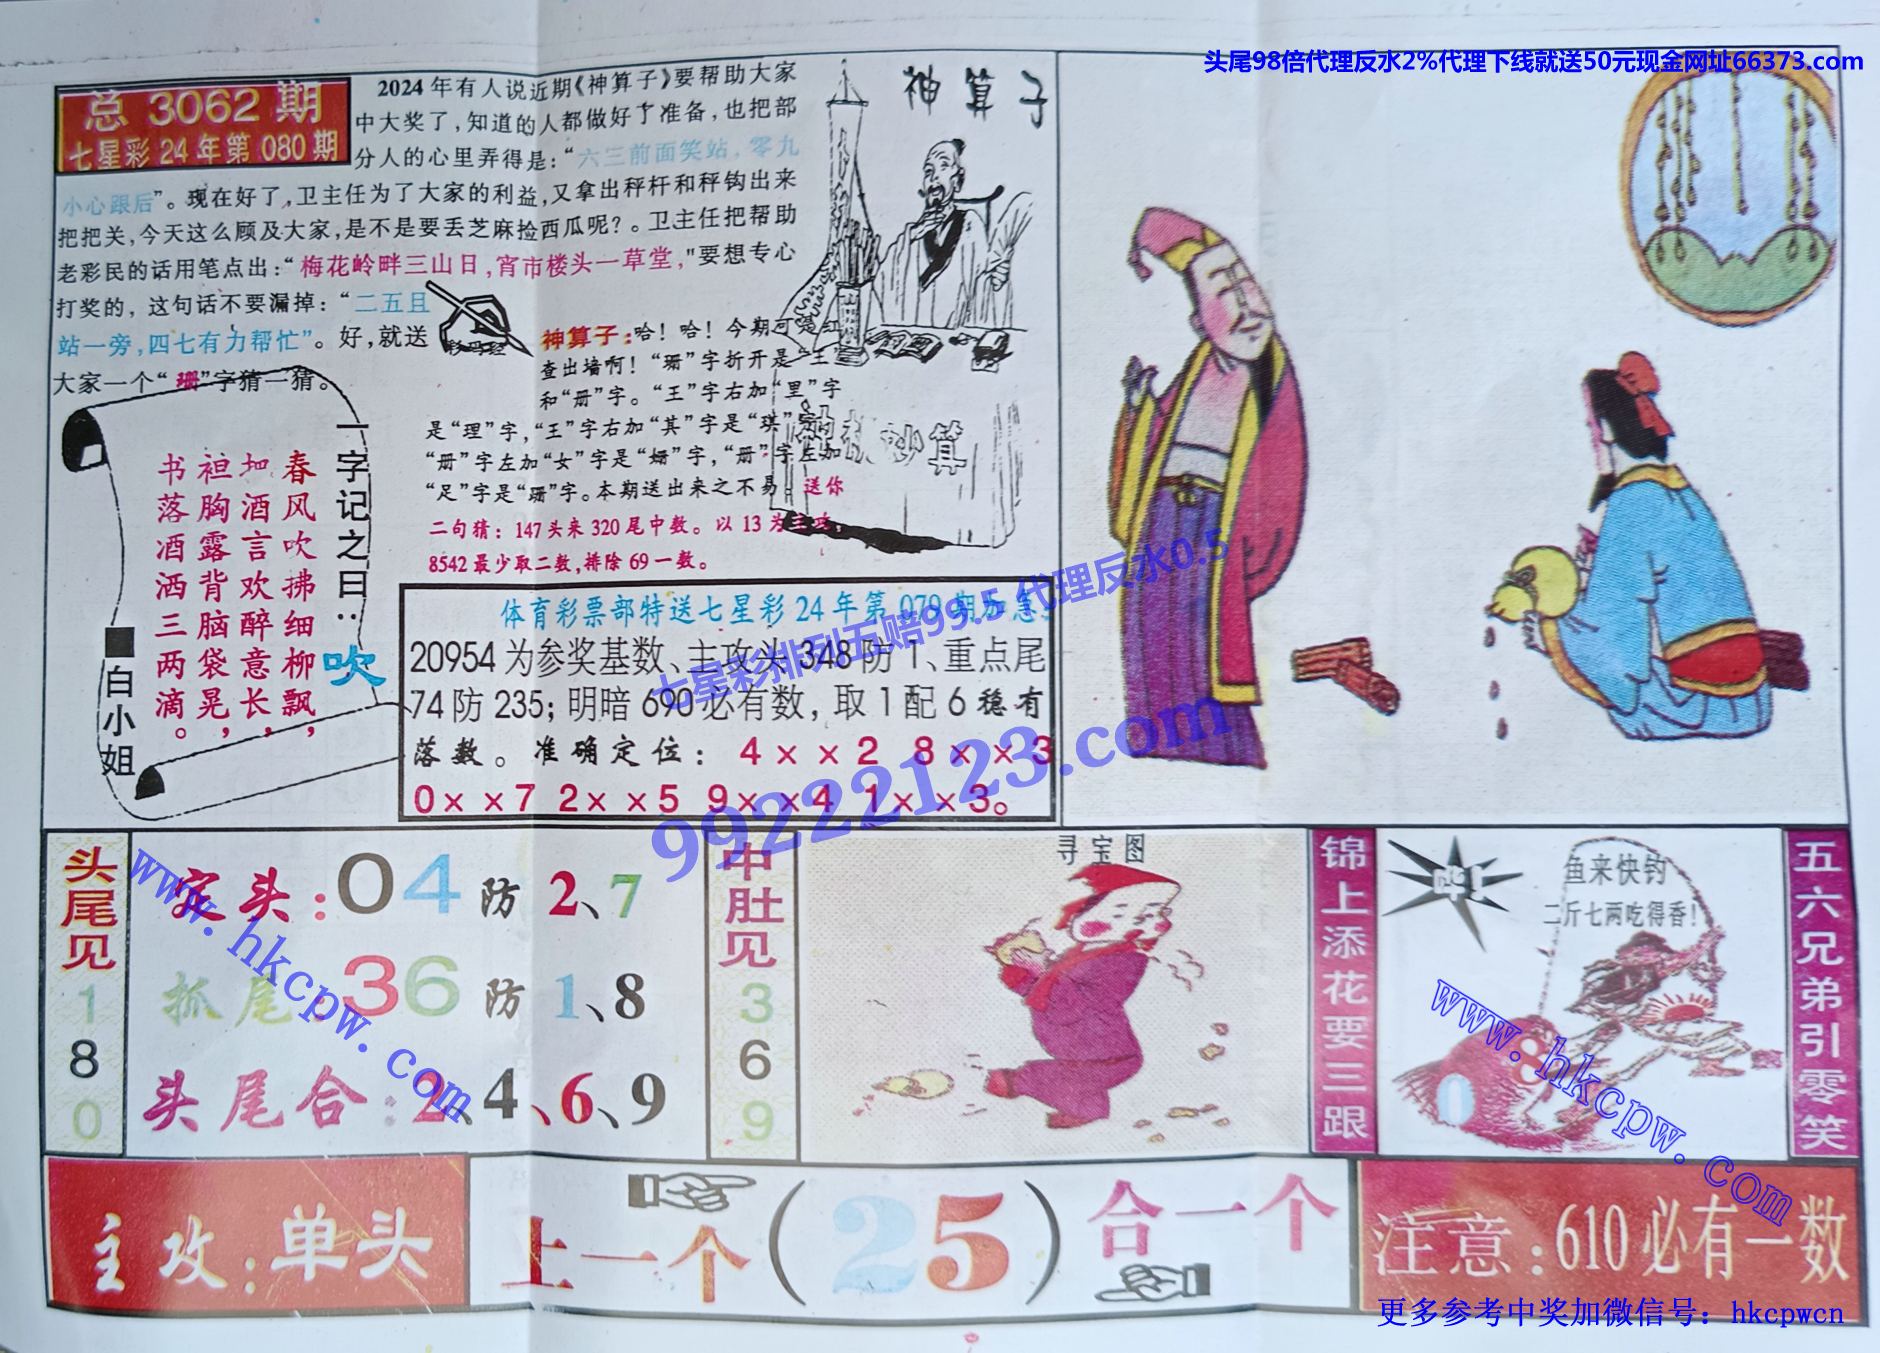 头尾98倍代理反水2%代理下线就送50元现金网址66373.com
总 3062 期
七星彩24年第080期
2024年有人说近期《神算子》要帮助大家
中大奖了，知道的人都做好了准备，也把部
分人的心里弄得是：“六三前面笑站，零九
小心跟后”。现在好了，卫主任为了大家的利益，又拿出秤杆和秤钩出来
把把关，今天这么顾及大家，是不是要丢芝麻捡西瓜呢？。卫主任把帮助
老彩民的话用笔点出：“梅花岭畔三山日，宵市楼头一草堂，”要想专心
打奖的，这句话不要漏掉：“二五且
站一旁，四七有力帮忙”。好，就送
大家一个“珊”字猜一猜。
神算子
神算子：哈！哈！今期可是红
查出墙啊！“珊”字折开是“王”
和“册”字。“王”字右加“里”字
是“理”字，“王”字右加“其”字是“琪”字。
“册”字左加“女”字是“姗”字，“册”字左加
“足”字是“跚”字。本期送出来之不易：送你
二句猜：147头来320尾中数。以13为主攻，
8542最少取二数，排除69一数。
一字记之曰：吹
春风吹拂细柳飘，
加酒言欢醉意长，
袒胸露背脑袋晃，
书落酒洒三两滴。
■白小姐
体育彩票部特送七星彩24年第079期加急：
20954为参奖基数、主攻头348防1、重点尾
74防235；明暗690必有数，取1配6稳有
落数。准确定位：4××2 8××3
0××7 2××5 9××4 1××3。
七星彩排列五赔99.5 代理反水0.5
99222123.com
头尾见180
定头：04防2、7
抓尾：36防1、8
头尾合：2、4、6、9
www.hkcpw.com
中肚见369
寻宝图
锦上添花要三跟
鱼来快钓
二斤七两吃得香！
0
8
www.hkcpw.com
五六兄弟引零笑
主攻：单头
上一个（25）合一个
注意：610必有一数
更多参考中奖加微信号：hkcpwcn